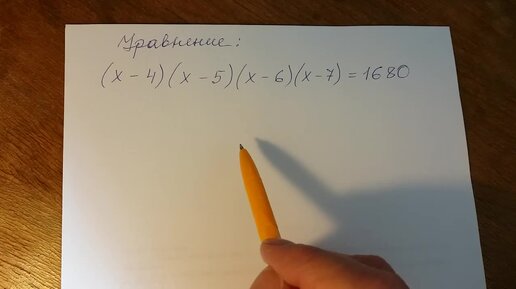 Уравнение:
(x - 4)(x - 5)(x - 6)(x - 7) = 1680